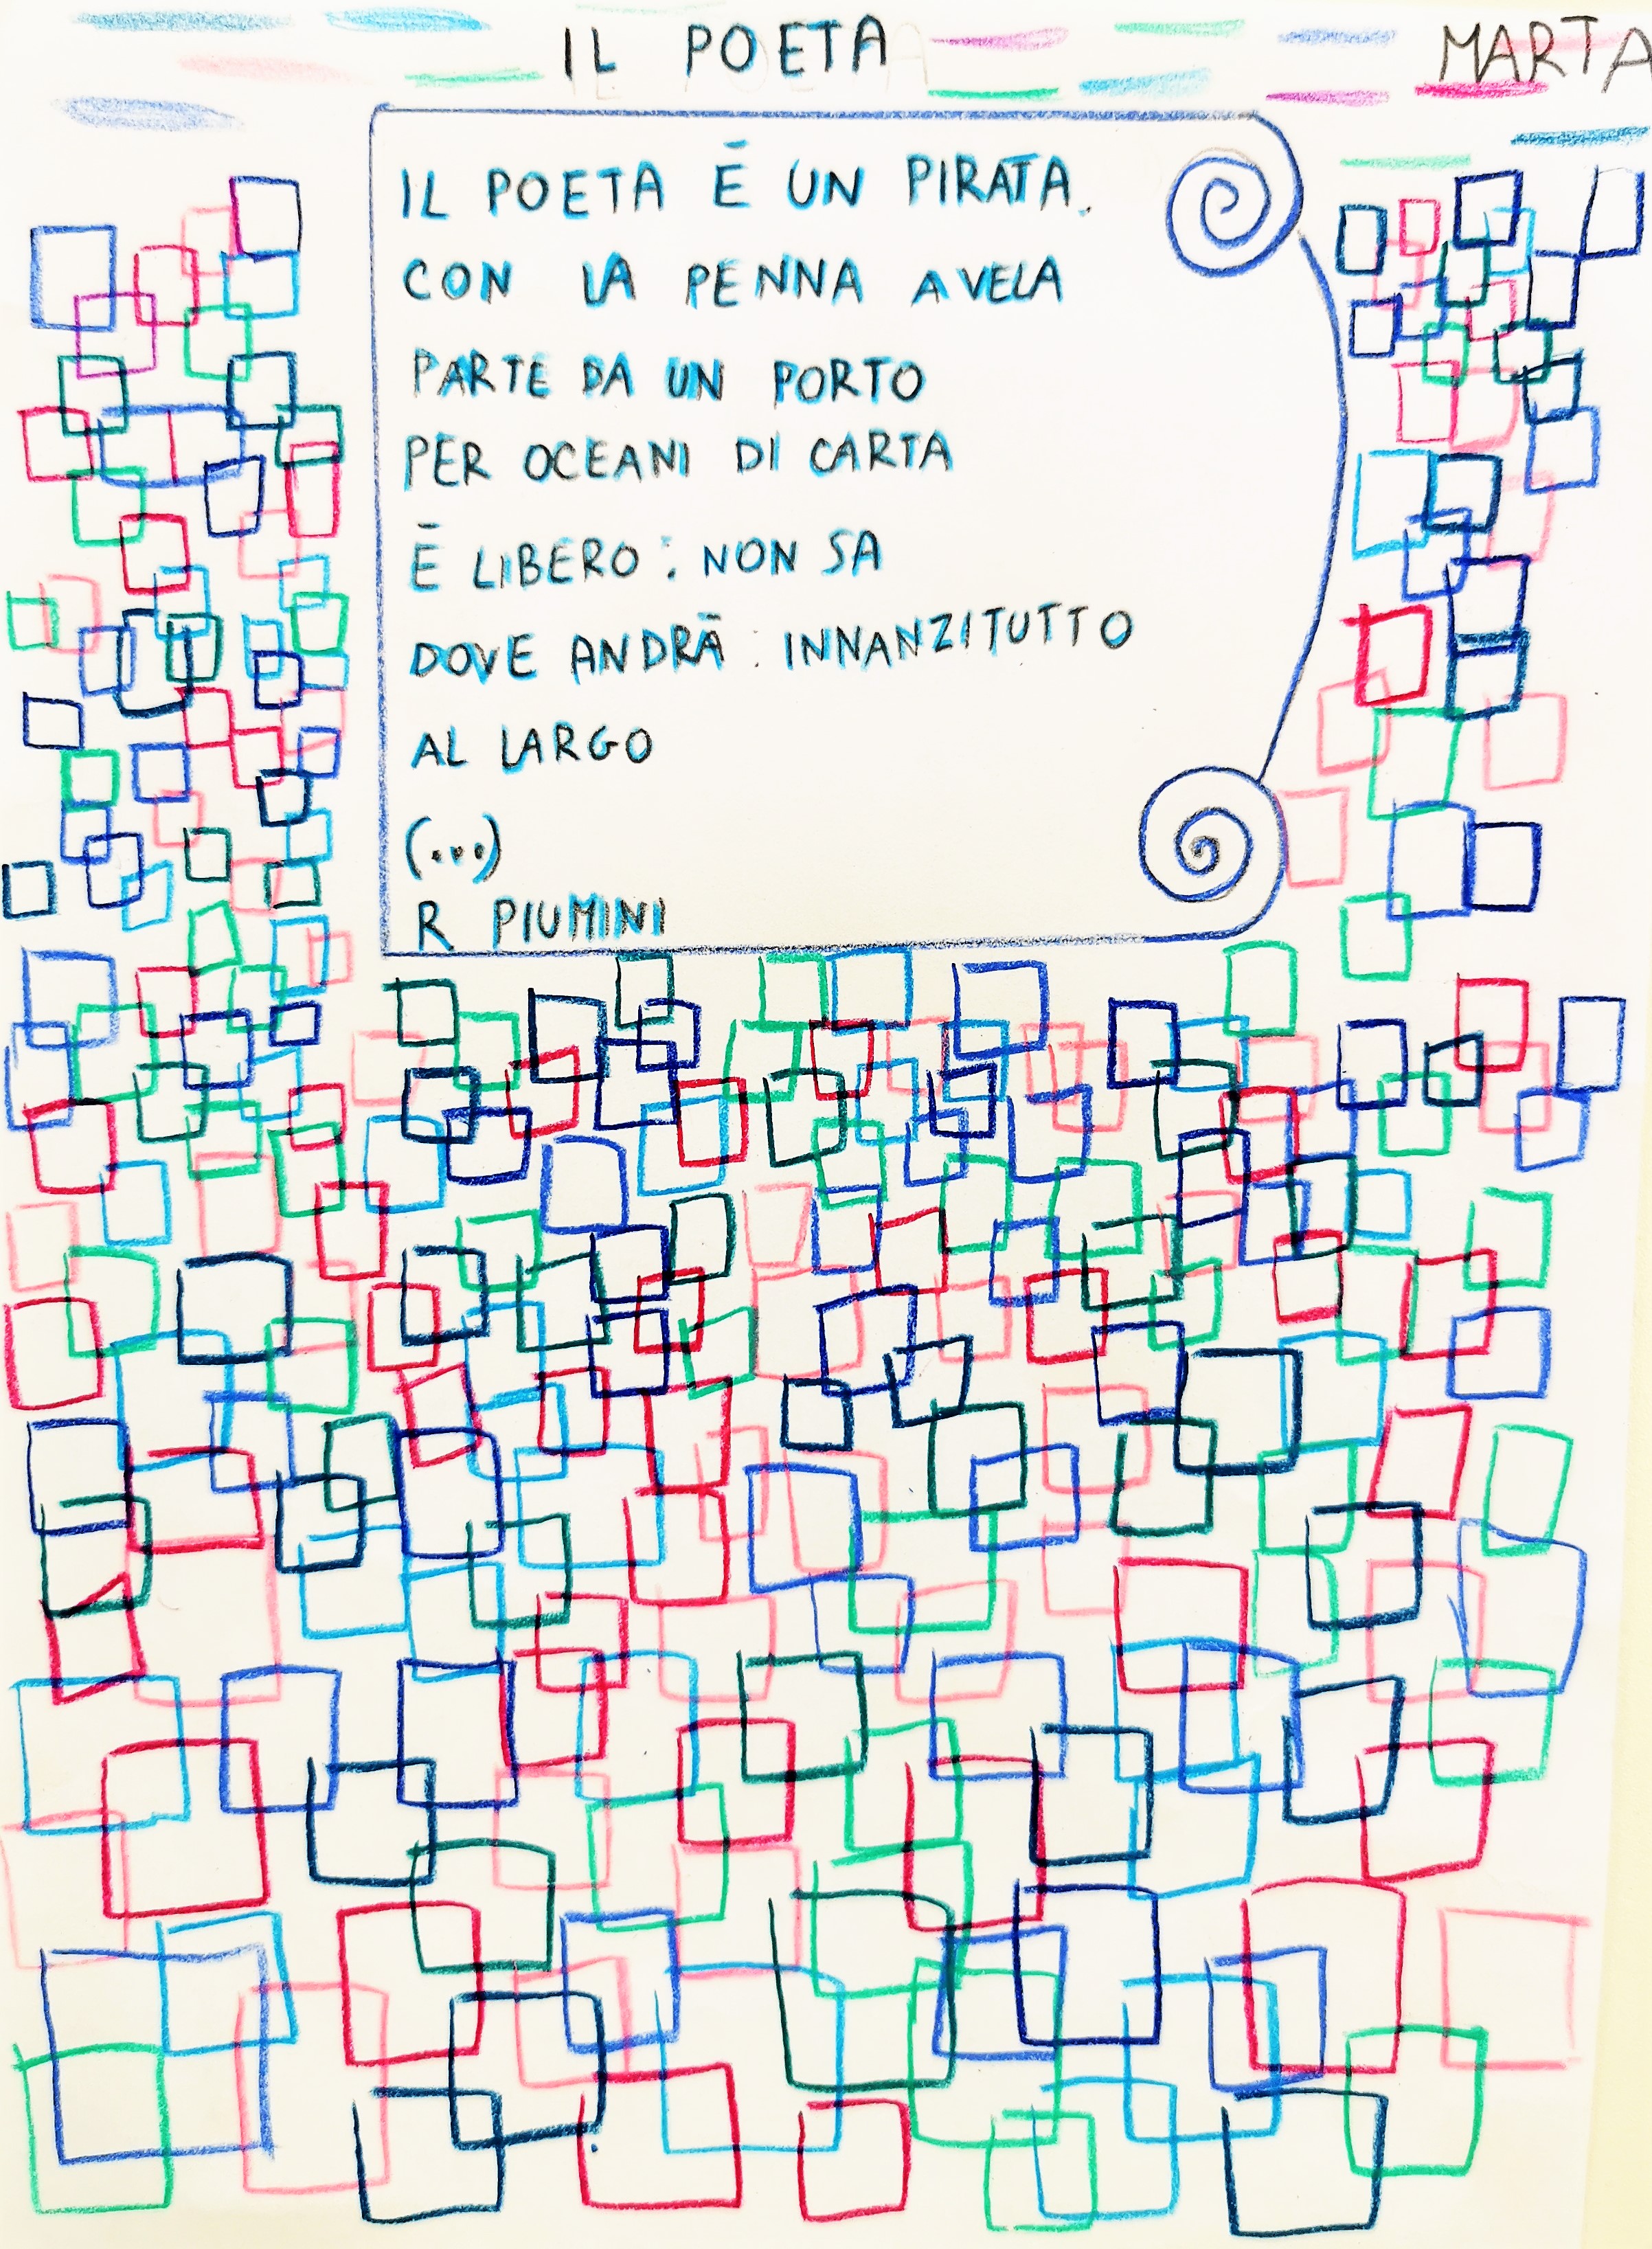 IL POETA
MARTA
IL POETA Ē UN PIRATA.
CON LA PENNA A VELA
PARTE DA UN PORTO
PER OCEANI DI CARTA
Ē LIBERO: NON SA
DOVE ANDRĀ: INNANZITUTTO
AL LARGO
(...)
R PIUMINI